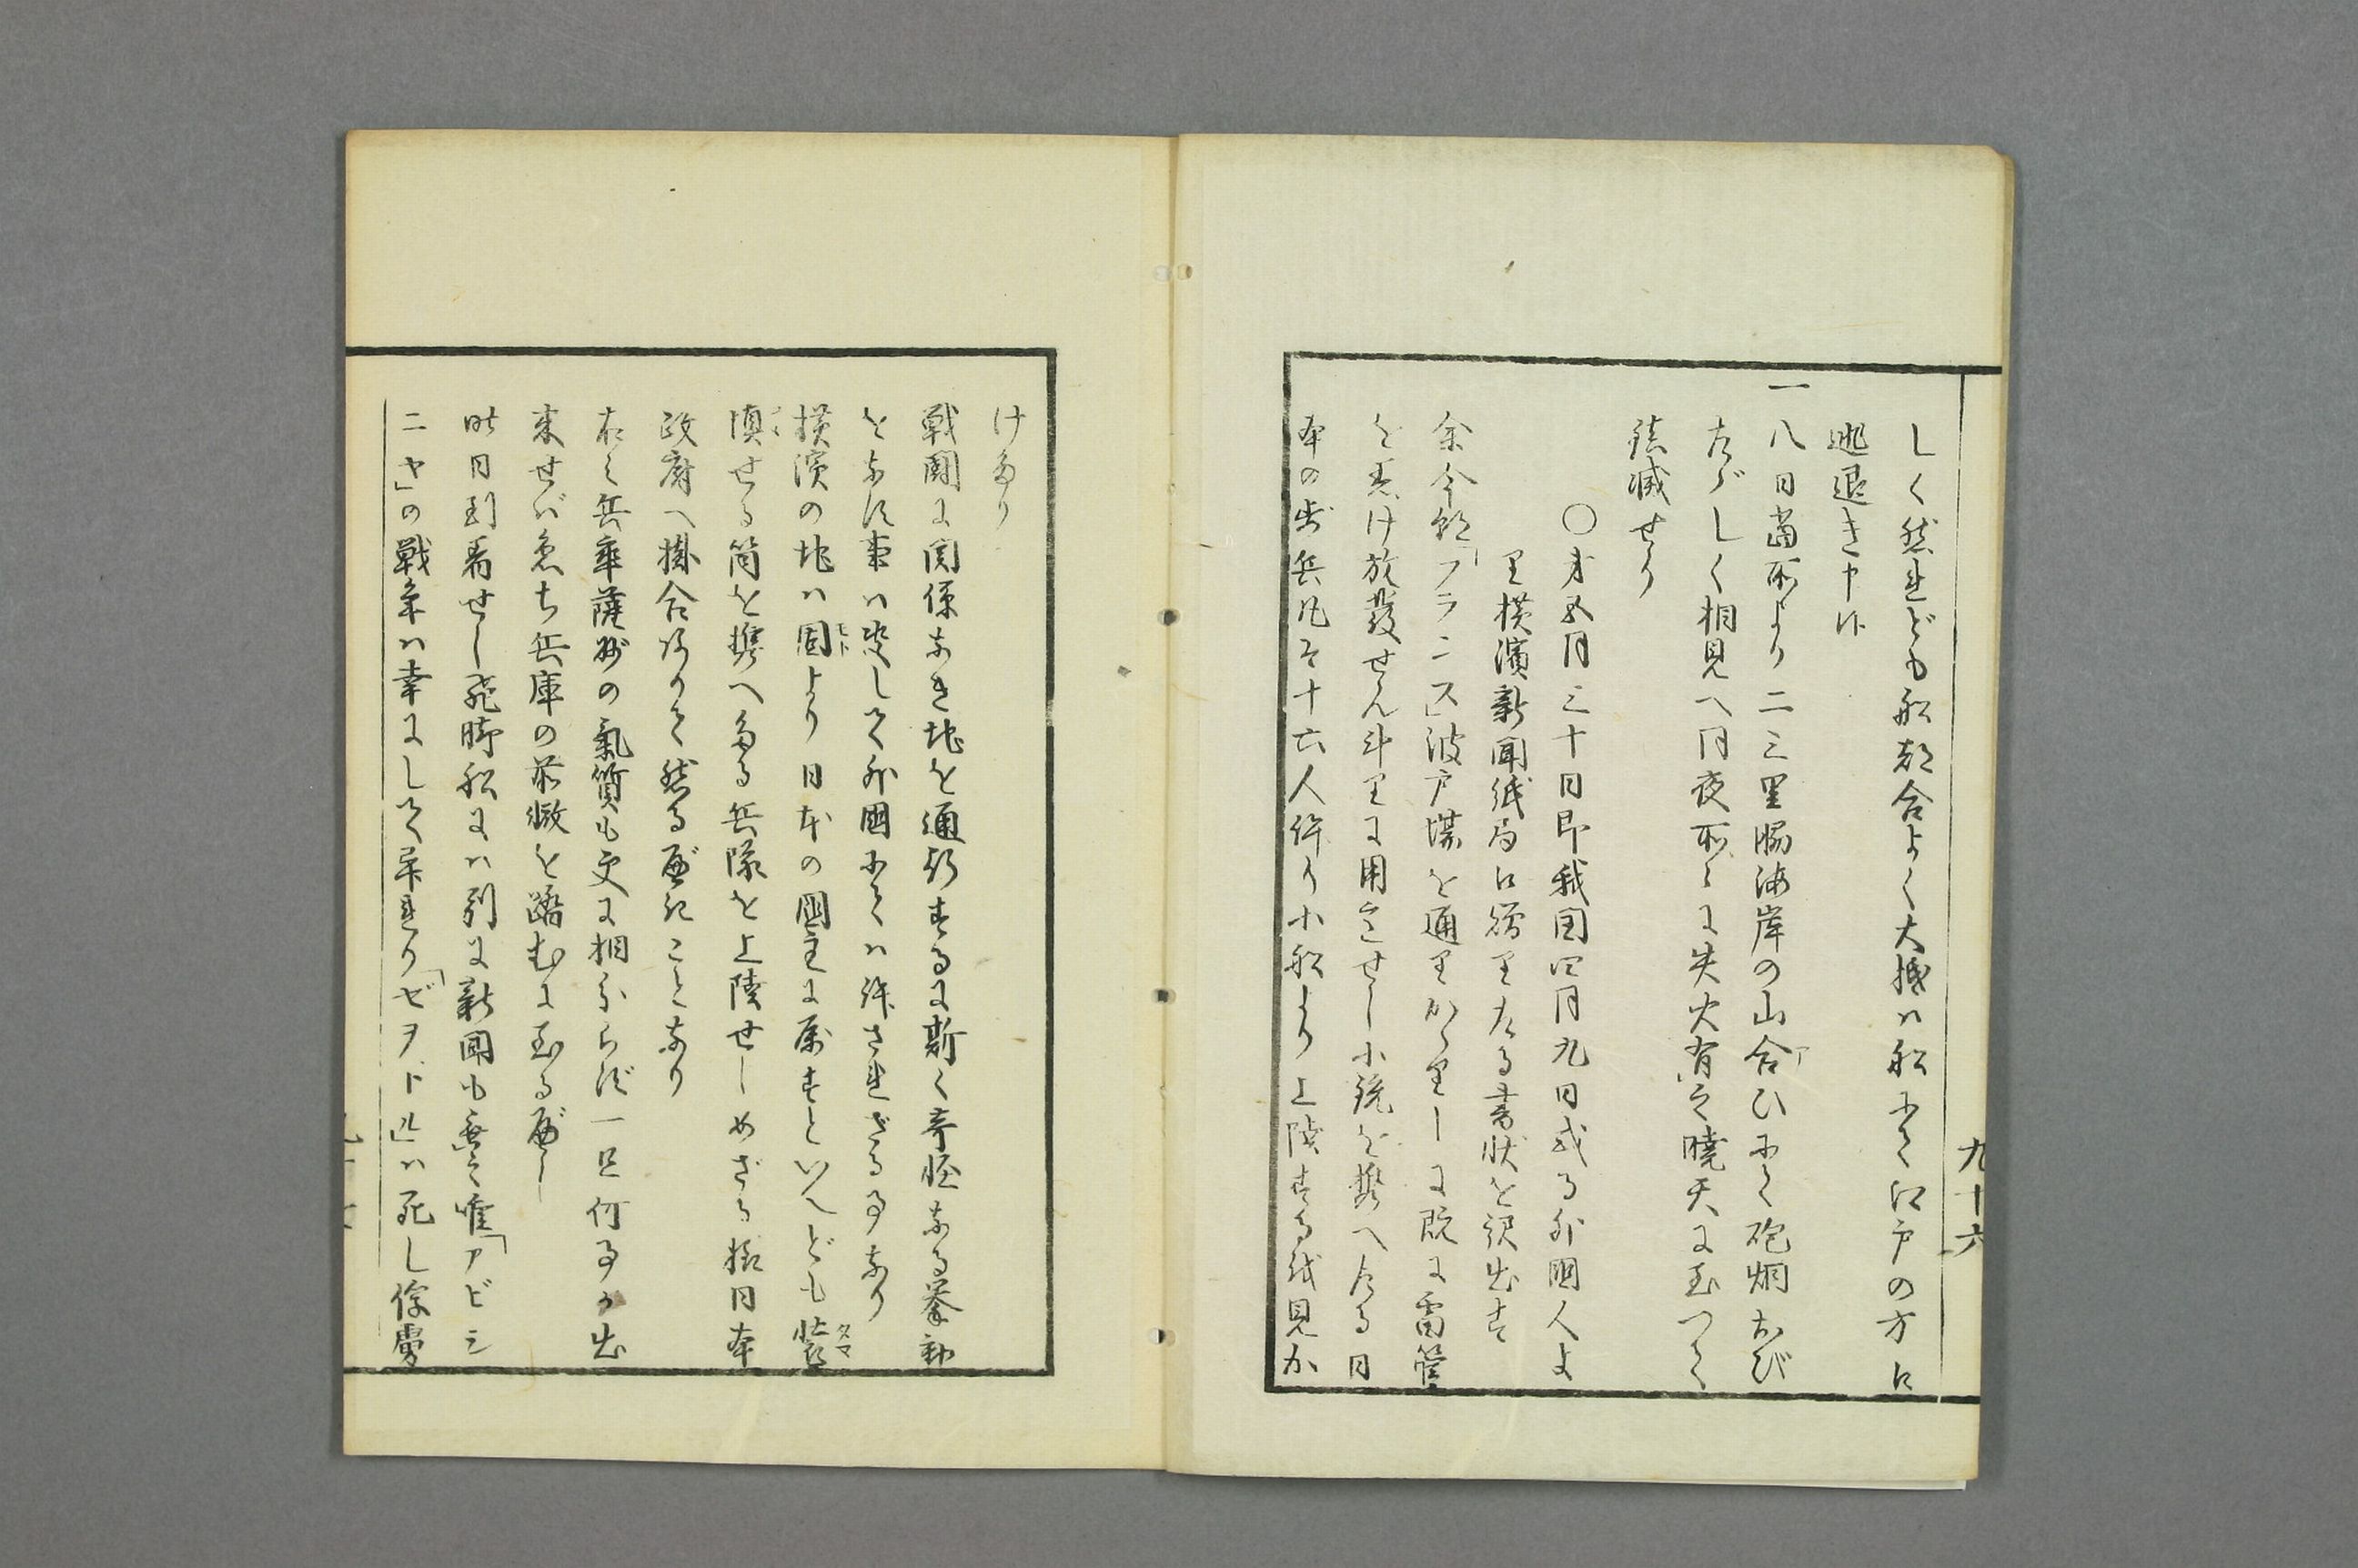 しく然れども船都合よく大抵ハ船にて江戸の方に
逃退き申候
一八日當所より二三里脇海岸の山合ひにて砲烟おび
たゞしく相見へ同夜所々に失火有之曉天に至つて
鎮滅せり
〇第五月三十日即我国四月九日或る外國人よ
り横濱新聞紙局に贈りたる書状を訳出す
余今朝「フランス」波戸場を通りかゝりしに既に雷管
を悬け放發せん斗りに用意せし小銃を携へたる日
本の歩兵凡そ十六人許り小船より上陸するを見か
九十六
けたり
戰鬪に関係なき地を通行するに斯く奇怪なる挙動
をなす事ハ決して外國にてハ許されざる事なり
横濱の地ハ固より日本の國主に属すといへども裝
填せる筒を携へたる兵隊を上陸せしめざる様日本
政府へ掛合ありて然る可きことなり
右之兵卒薩州の氣質も更に相分らず一旦何事か出
来せバ忽ち兵庫の前轍を踏むに至る可し
昨日到着せし飛脚船にハ別に新聞も無之唯「アビシ
ニヤ」の戰争ハ幸にして平れり「ゼヲドル」ハ死し俘虜